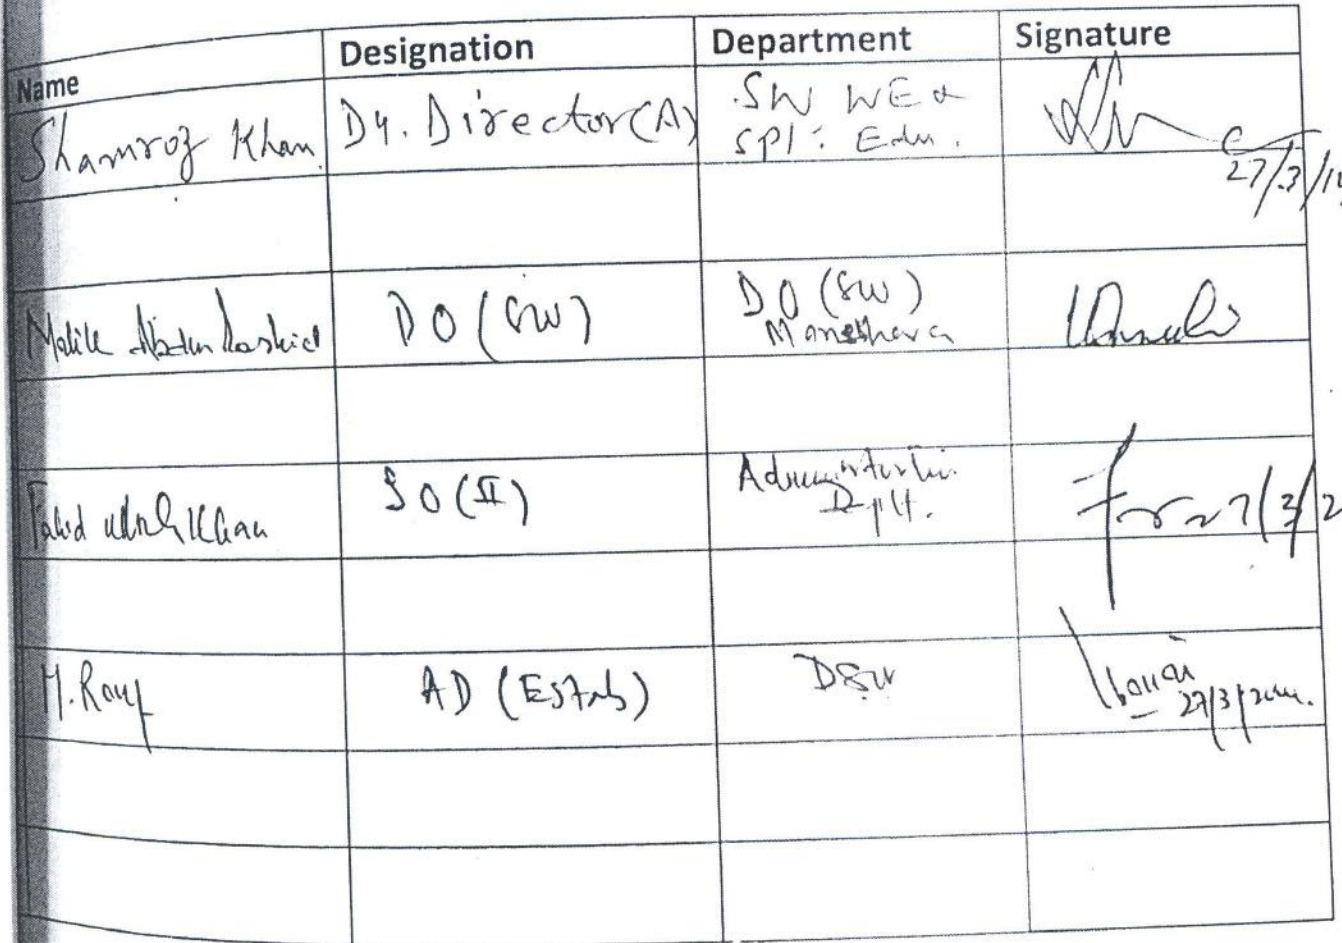 Name Designation Department Signature
Shamroz Khan Dy. Director (A) SW WE &
Spl: Edu.
27/3/14
Malik Abdur Rashid DO (SW) DO (SW)
Manshera
Khan SO (II) Administration
Deptt.
27/3/2
M. Rauf AD (Estab) DSW
27/3/2014.